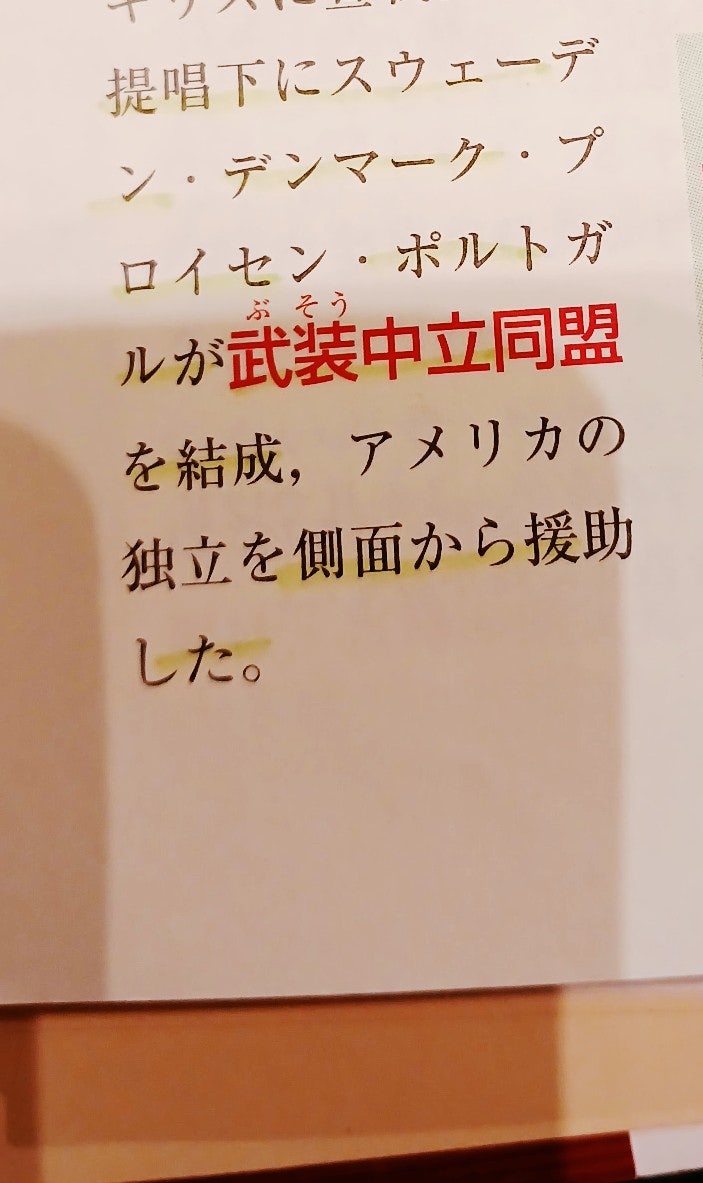 提唱下にスウェーデ
ン・デンマーク・プ
ロイセン・ポルトガ
ぶそう
ルが武装中立同盟
を結成，アメリカの
独立を側面から援助
した。